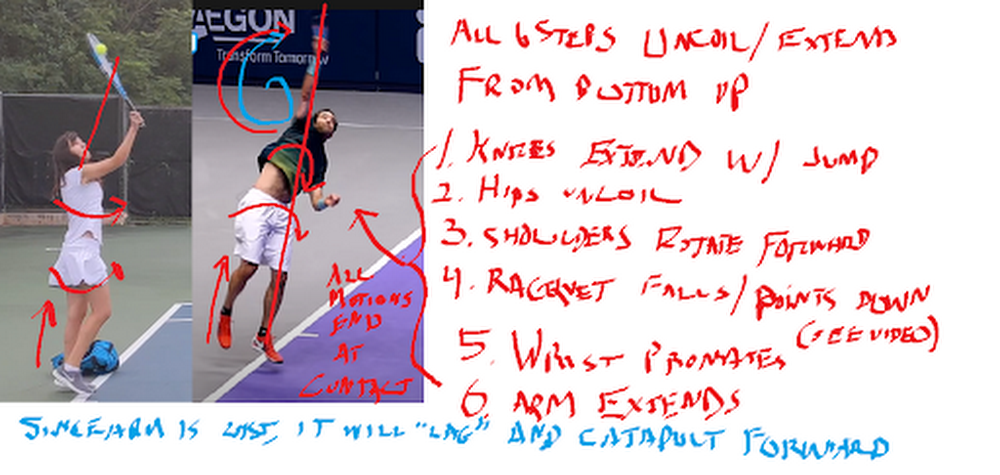 AEGON
Transform Tomorrow
ALL 6 STEPS UNCOIL/EXTEND
FROM BOTTOM UP
1. KNEES EXTEND W/ JUMP
2. HIPS UNCOIL
3. SHOULDERS ROTATE FORWARD
4. RACQUET FALLS/POINTS DOWN
(SEE VIDEO)
5. WRIST PRONATES
6. ARM EXTENDS
ALL
MOTIONS
END
AT
CONTACT
SINCE ARM IS LAST, IT WILL "LAG" AND CATAPULT FORWARD